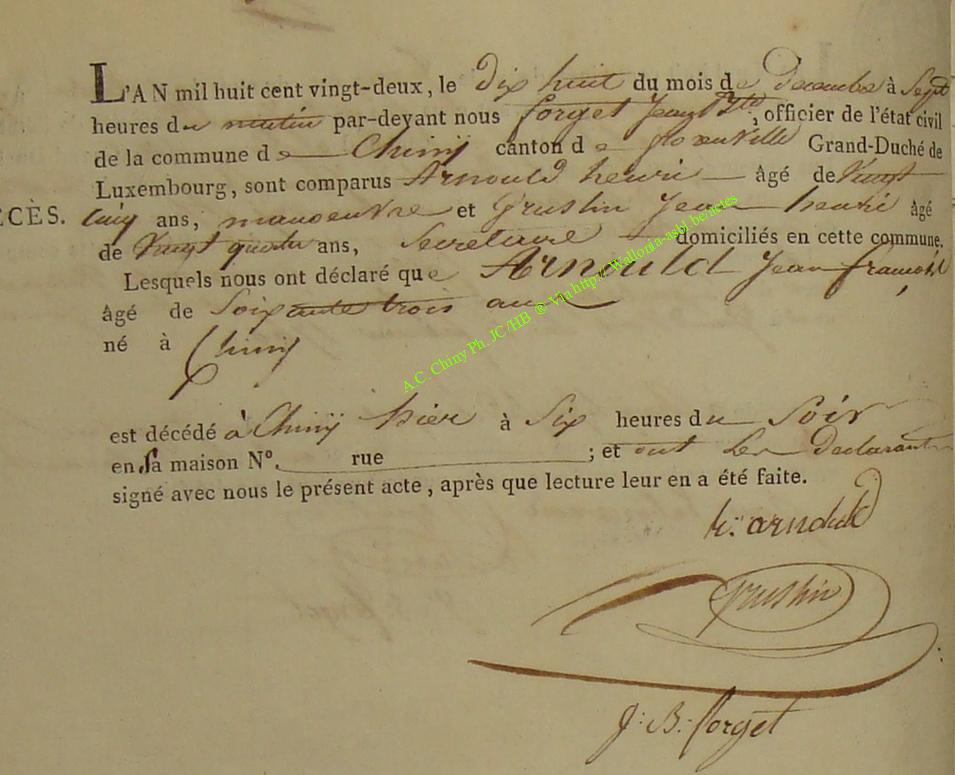 L'AN mil huit cent vingt-deux, le dix huit du mois de Decembre à Sept
heures du matin par-devant nous forget Jean Bte, officier de l'état civil
de la commune de Chiny canton de florenville Grand-Duché de
Luxembourg, sont comparus Arnould henri âgé de Vingt
ÉCÈS. cinq ans, manoeuvre et Grustin Jean henri âgé
de Vingt quatre ans, Secretaire domiciliés en cette commune.
Lesquels nous ont déclaré que Arnould Jean françois
âgé de Soixante trois ans
né à Chiny
A.C. Chiny Ph. JC/HB @ Vin http://Walloria-asbl.be/actes
est décédé à Chiny hier à Six heures du Soir
en sa maison N°. rue ; et ont Les Declarant
signé avec nous le présent acte, après que lecture leur en a été faite.
h. arnould
Grustin
J: B. forget